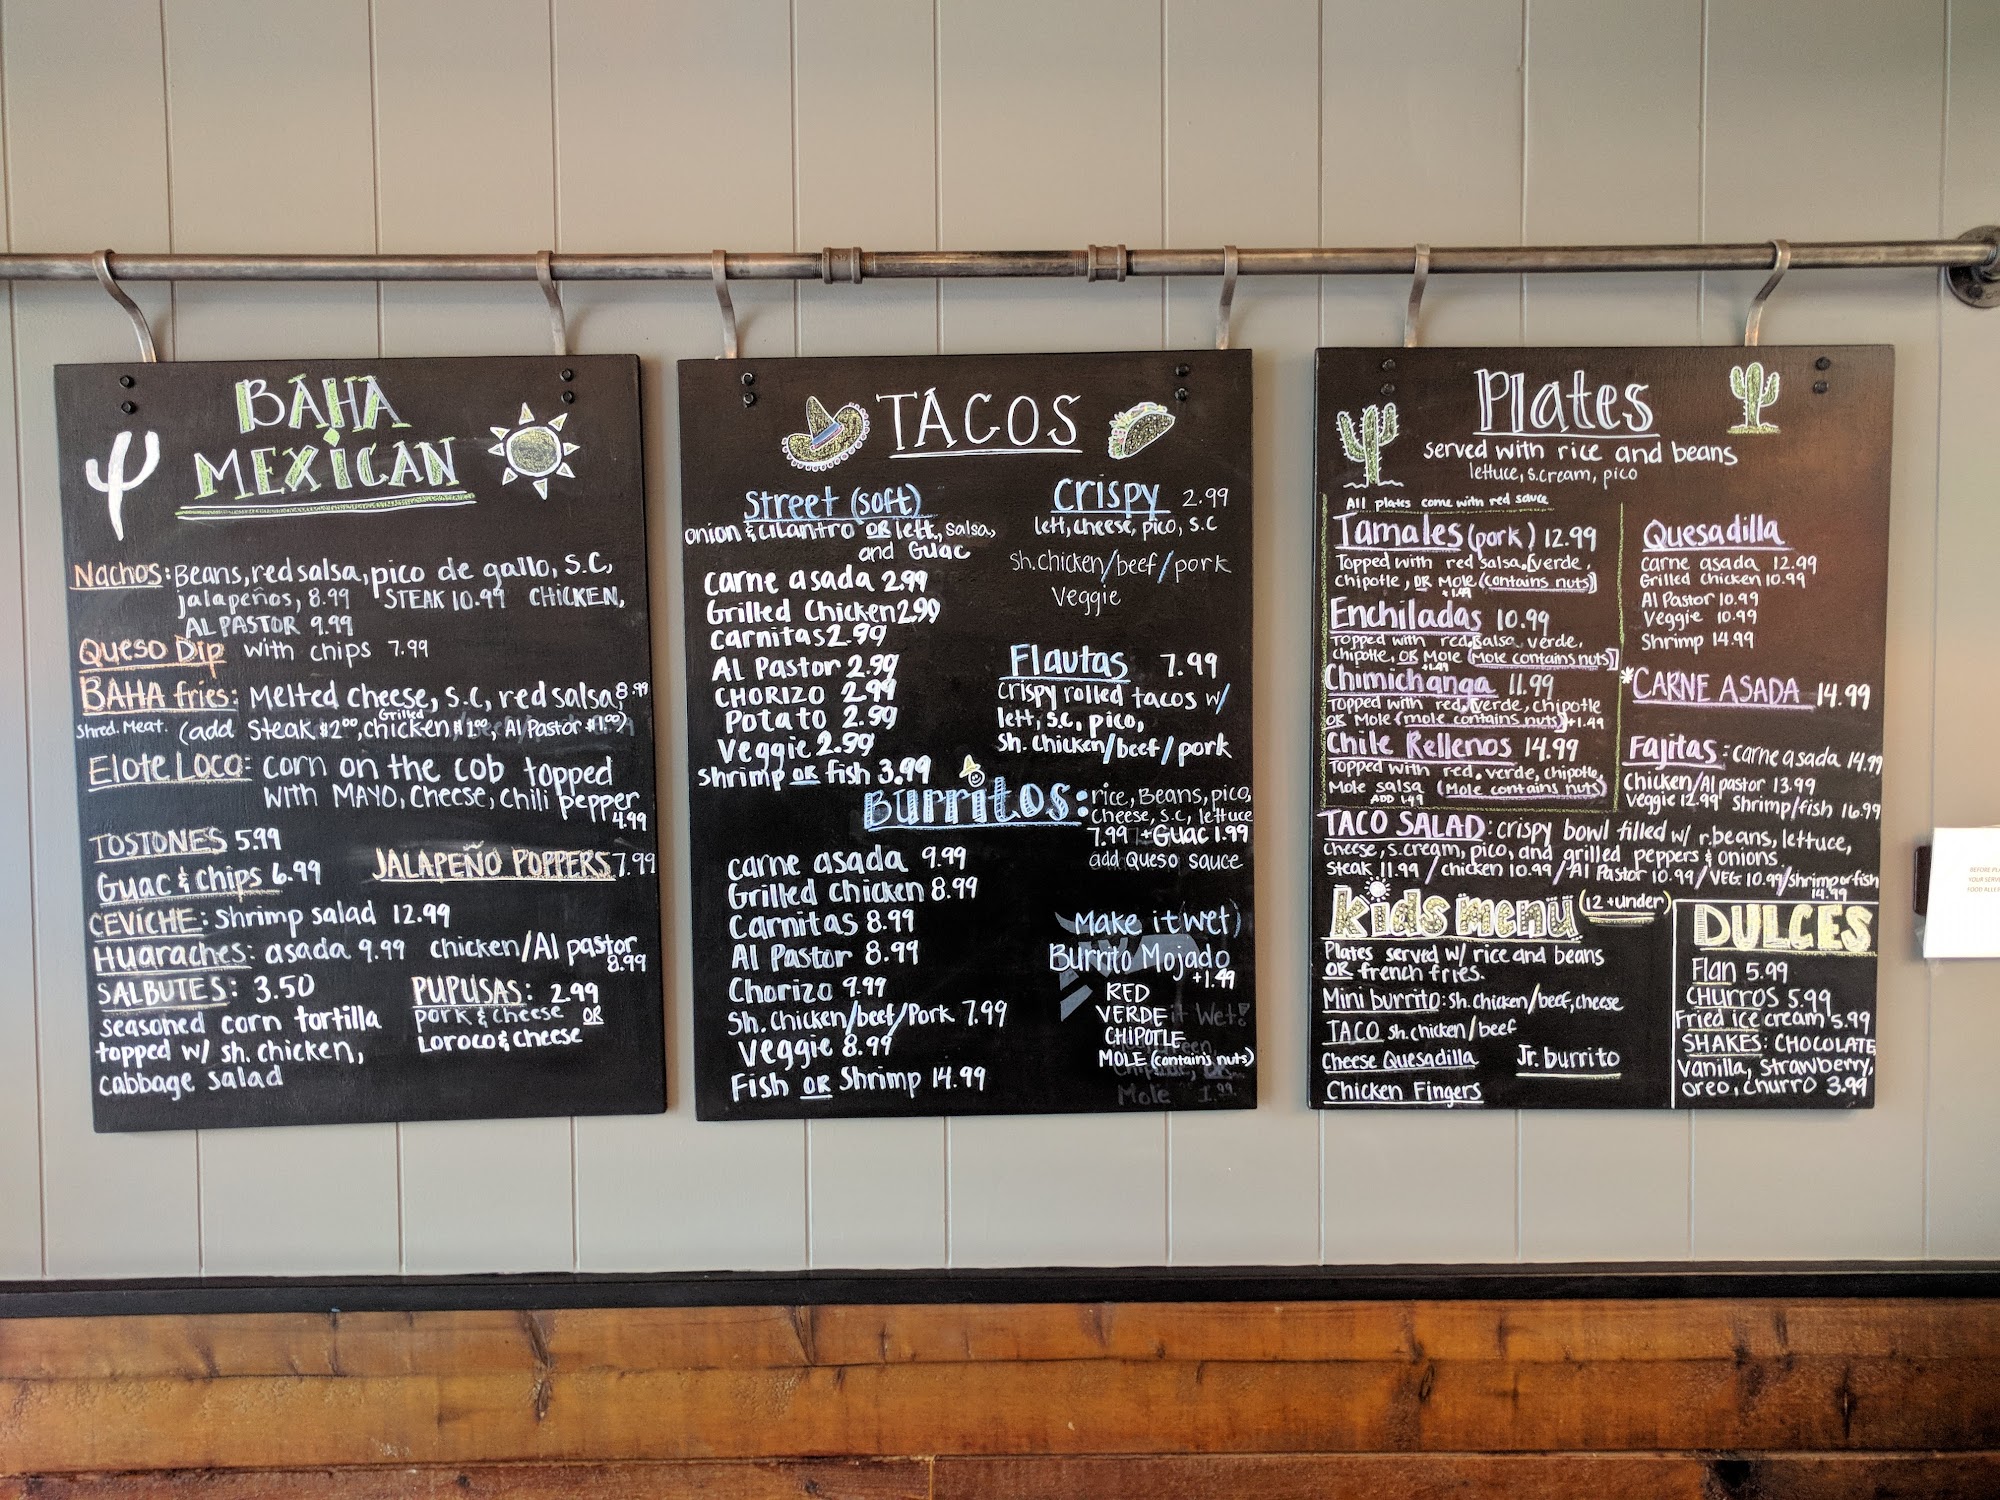 BAHA
MEXICAN
Nachos: Beans, red salsa, pico de gallo, S.C,
jalapeños, 8.99 STEAK 10.99 CHICKEN,
AL PASTOR 9.99
Queso Dip with chips 7.99
BAHA fries: Melted cheese, s.c, red salsa, 8.99
Shred. Meat. (add Steak $2.00, Grilled chicken $1.00, Al Pastor $1.00)
Elote Loco: corn on the cob topped
with MAYO, Cheese, Chili pepper
4.99
TOSTONES 5.99
JALAPEÑO POPPERS 7.99
Guac & chips 6.99
CEVICHE: Shrimp salad 12.99
HUARACHES: asada 9.99 chicken/Al pastor
8.99
SALBUTES: 3.50
seasoned corn tortilla
topped w/ sh. chicken,
cabbage salad
PUPUSAS: 2.99
pork & cheese OR
LOROCO & cheese
TACOS
Street (soft)
onion & cilantro OR lett., salsa,
and Guac
carne asada 2.99
Grilled Chicken 2.99
carnitas 2.99
Al Pastor 2.99
CHORIZO 2.99
Potato 2.99
Veggie 2.99
shrimp OR fish 3.99
Crispy 2.99
lett, cheese, pico, s.c
sh.chicken/beef/pork
Veggie
Flautas 7.99
Crispy rolled tacos w/
lett, s.c, pico,
sh. chicken/beef/pork
Burritos: rice, Beans, pico,
cheese, s.c, lettuce
7.99 + Guac 1.99
add Queso sauce
carne asada 9.99
Grilled chicken 8.99
Carnitas 8.99
Al Pastor 8.99
Chorizo 9.99
Sh. Chicken/beef/Pork 7.99
Veggie 8.99
Fish OR Shrimp 14.99
Make it (wet)
Burrito Mojado
+1.49
RED
VERDE
CHIPOTLE
MOLE (contains nuts)
it Wet!
Mole 1.99
Plates
served with rice and beans
lettuce, s.cream, pico
All plates come with red sauce
Tamales (pork) 12.99
Topped with red salsa, [verde,
chipotle, OR Mole (contains nuts)]
+1.49
Enchiladas 10.99
Topped with red salsa, verde,
chipotle, OR Mole [Mole contains nuts)]
+1.49
Chimichanga 11.99
Topped with red, [verde, chipotle
OR Mole (mole contains nuts)] +1.49
Chile Rellenos 14.99
Topped with red, verde, chipotle,
Mole salsa (Mole contains nuts)
ADD 1.49
Quesadilla
carne asada 12.99
Grilled chicken 10.99
Al Pastor 10.99
Veggie 10.99
Shrimp 14.99
*CARNE ASADA 14.99
Fajitas: carne asada 14.99
Chicken/Al pastor 13.99
veggie 12.99 Shrimp/fish 16.99
TACO SALAD: crispy bowl filled w/ r.beans, lettuce,
cheese, s.cream, pico, and grilled peppers & onions
Steak 11.99 / chicken 10.99 / Al Pastor 10.99 / VEG. 10.99/shrimp or fish
14.99
kids menu (12 + under)
Plates served w/ rice and beans
OR french fries.
Mini burrito: sh. chicken/beef, cheese
TACO sh. chicken/beef
Cheese Quesadilla
Jr. burrito
Chicken Fingers
DULCES
Flan 5.99
CHurros 5.99
Fried ice cream 5.99
SHAKES: CHOCOLATE
vanilla, strawberry,
oreo, churro 3.99
BEFORE
YOUR
FOOD